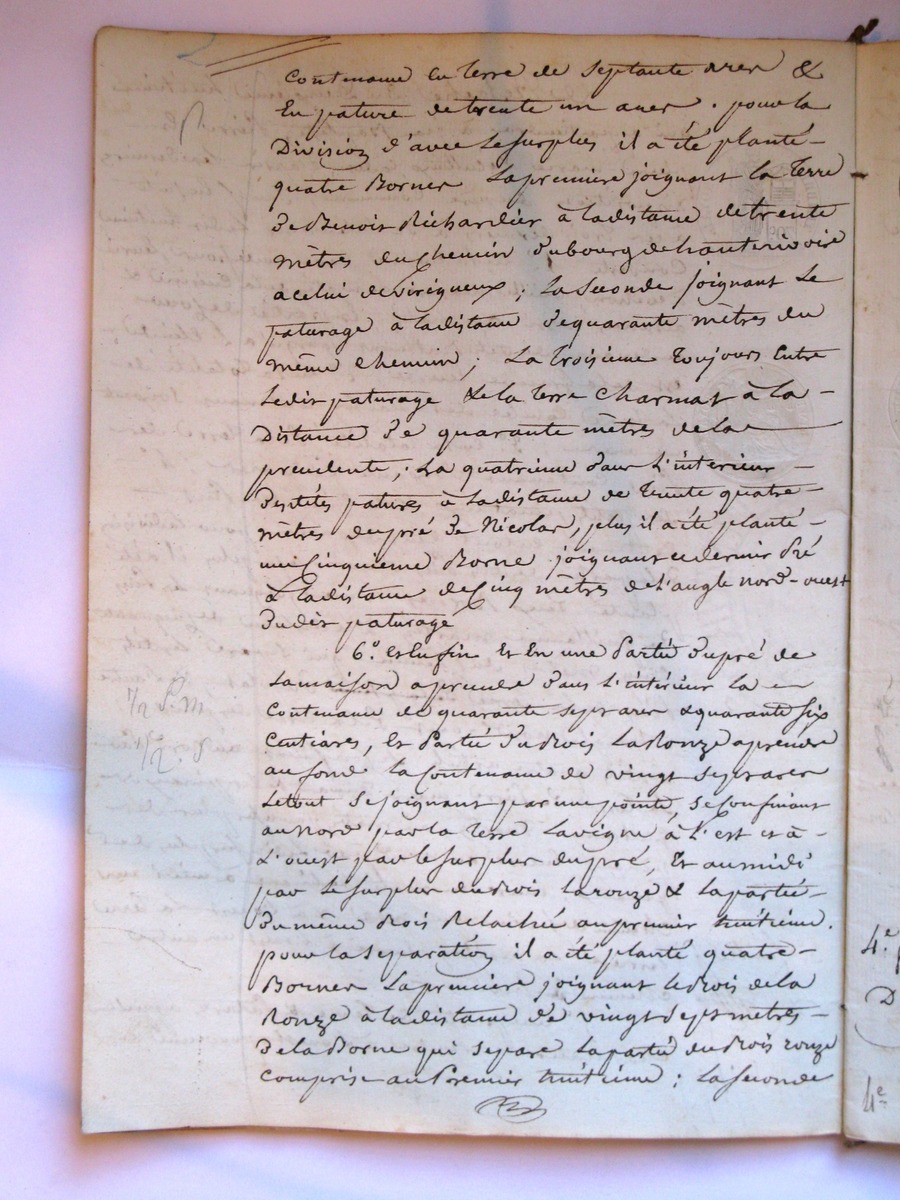 Contenance en terre de septante ares &
En pature de trente un ares . pour la
Division d'avec le surplus il a été planté -
quatre Bornes La premiere joignant la terre
de Benoit Richardier à la distance de trente
mètres du chemin du bourg de hauterivoire
a celui de Virigneux ; la seconde joignant le
paturage à la distance de quarante mètres du
même chemin ; La troisieme toujours entre
ledit paturage & la terre Charmat à la -
Distance de quarante mètres de la
precedente ; La quatrieme dans l'intérieur -
desdites patures à la distance de trente quatre -
mètres du pré de Nicolas, plus il a été planté -
une Cinquieme Borne joignant ce dernier Pré
à la distance de Cinq mètres de l'angle nord-ouest
dudit paturage
6.° et Enfin Et En une Partie du pré de
la maison a prendre dans l'intérieur la
Contenance de quarante sept ares & quarante six
Centiares, Et Partie du Bois La Ronze a prendre
au fond la Contenance de vingt sept ares
Le tout se joignant par une pointe, se Confinant
au Nord par la terre Lavigne à l'est et à -
l'ouest par le surplus du pré, Et au midi
par le surplus du Bois la ronze & la partie -
du même Bois Relachée au premier huitième.
pour la separation il a été planté quatre -
Bornes La premiere joignant le Bois de la
Ronze à la distance de vingt sept metres -
de la Borne qui separe la partie du Bois ronze
comprise au Premier huitieme ; la seconde
1/2 P. m
1/2 . P
4.e
D
4e